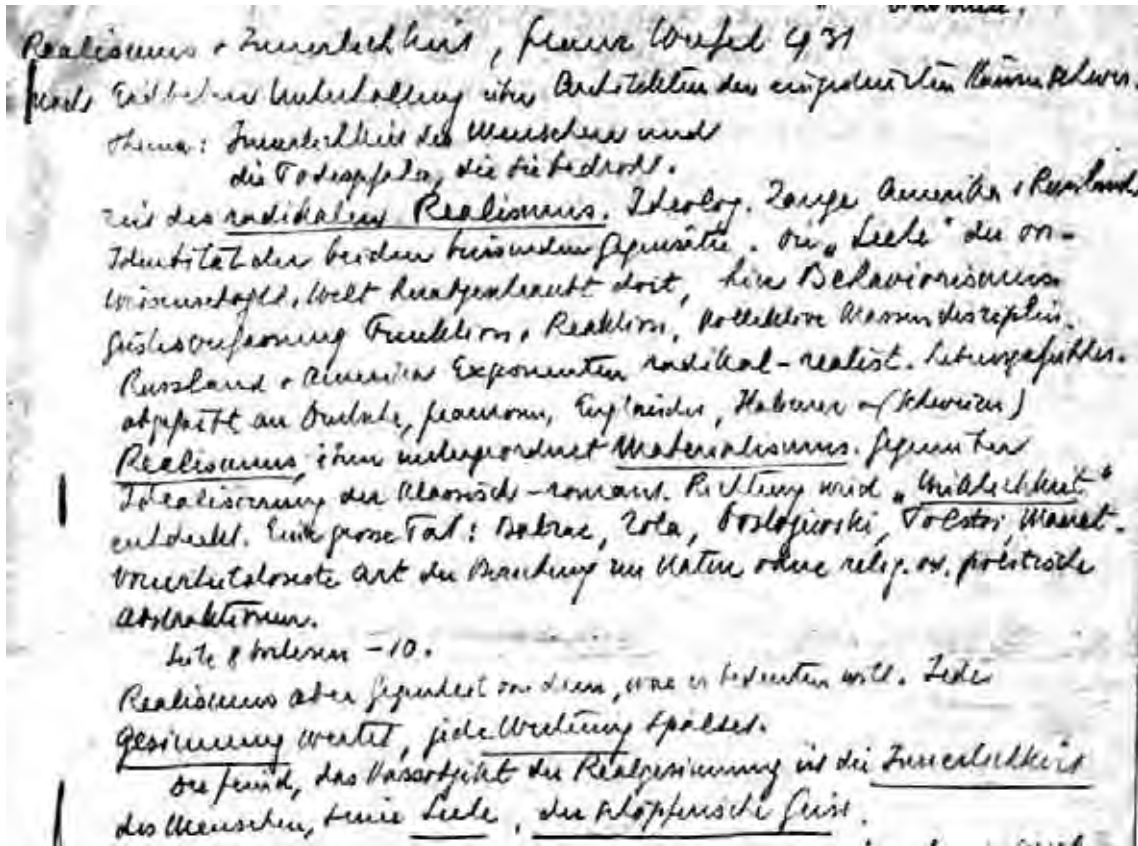 Realismus + Innerlichkeit, Franz Werfel 1931
nach Erdbeben Unterhaltung über Architekten der
Thema: Innerlichkeit des Menschen und
die Todesgefahr, die sie bedroht.
Zeit des radikalen Realismus. Ideolog. Zange Amerika + Russland
Identität der beiden Gegensätze. Die „Seele" der
wissenschaftl. Welt dort, hier Behaviorismus
Geistesverfassung Funktion, Reaktion, kollektive Massendisziplin.
Russland + Amerika Exponenten radikal-realist. Lebensgefühles.
an Deutsche, Franzosen, Engländer, Italiener (Schweizer)
Realismus, ihm untergeordnet Materialismus. Gegenüber
Idealisierung der klassisch-romant. Richtung wird „Wirklichkeit"
entdeckt. Eine grosse Tat: Balzac, Zola, Dostojewski, Tolstoi, Manet.
Art der Beziehung zur Natur ohne relig. od. poetische
Abstraktionen.
Seite 8 vorlesen – 10.
Realismus aber Gegenteil von dem, was er bedeuten will. Jede
Gesinnung wertet, jede Wertung spaltet.
Der Feind, das Hassobjekt der Realgesinnung ist die Innerlichkeit
des Menschen, seine Seele, der schöpferische Geist.